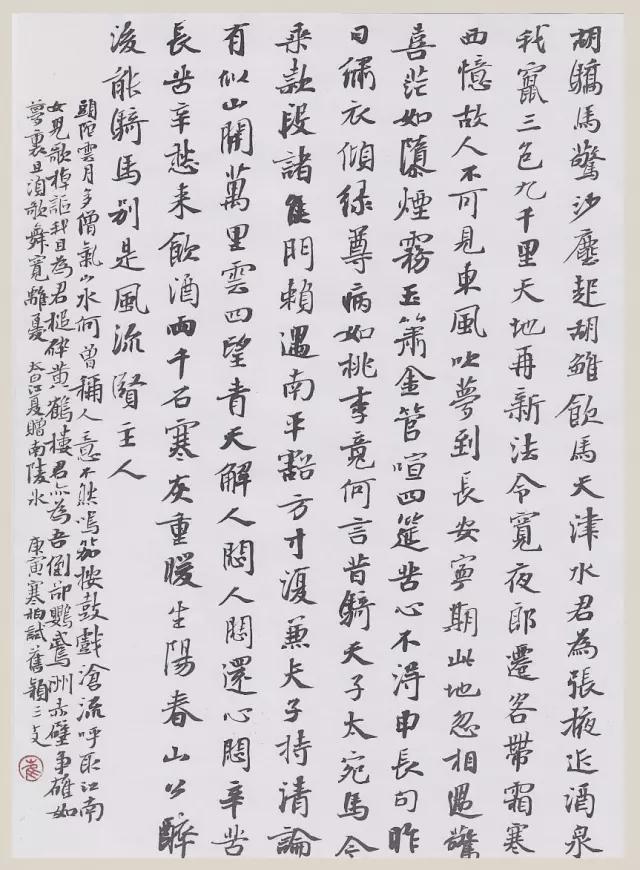 胡驕馬驚沙塵起胡雛飲馬天津水君為張掖近酒泉
我竄三色九千里天地再新法令寬夜郎遷客帶霜寒
西憶故人不可見東風吹夢到長安寧期此地忽相遇驚
喜茫如墮煙霧玉簫金管喧四筵苦心不得申長句昨
日繡衣傾綠尊病如桃李竟何言昔騎天子太宛馬今
乘款段諸侯門賴遇南平豁方寸復兼夫子持清論
有似山開萬里雲四望青天解人悶人悶還心悶辛苦
長苦辛愁來飲酒兩千石寒灰重暖生陽春山公醉
後能騎馬別是風流賢主人
頭陀雲月多僧氣山水何曾稱人意不然鳴笳按鼓戲滄流呼取江南
女兒歌棹謳我且為君槌碎黃鶴樓君亦為吾倒卻鸚鵡洲赤壁爭雄如
夢裏且須歌舞寬離憂 太白江夏贈南陵冰 庚寅寒柏試舊穎三支